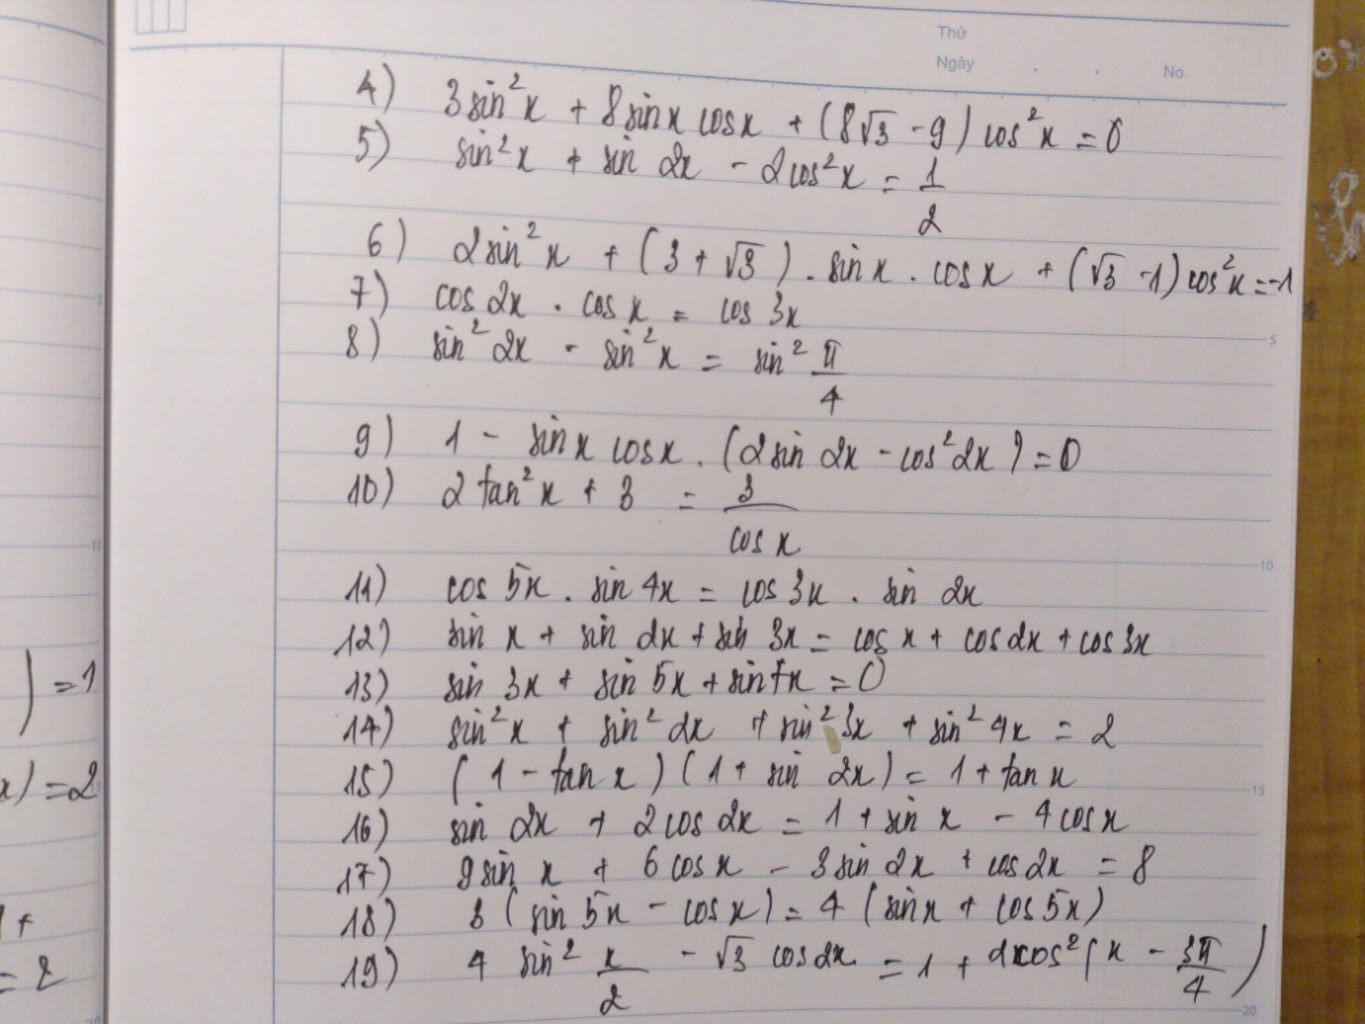 Thứ
Ngày . . No.
4) 3sin²x + 8sinx cosx + (8√3 - 9) cos²x = 0
5) sin²x + sin 2x - 2cos²x = 1/2
6) 2sin²x + (3 + √3) . sinx . cosx + (√3 - 1) cos²x = -1
7) cos 2x . cos x = cos 3x
8) sin² 2x - sin²x = sin² π/4
9) 1 - sinx cosx . (2sin 2x - cos²2x) = 0
10) 2 tan²x + 3 = 3/cos x
11) cos 5x . sin 4x = cos 3x . sin 2x
12) sin x + sin 2x + sin 3x = cos x + cos 2x + cos 3x
13) sin 3x + sin 5x + sin 7x = 0
14) sin²x + sin² 2x + sin² 3x + sin² 4x = 2
15) (1 - tan x) (1 + sin 2x) = 1 + tan x
16) sin 2x + 2 cos 2x = 1 + sin x - 4 cos x
17) 9 sin x + 6 cos x - 3 sin 2x + cos 2x = 8
18) 3 (sin 5x - cos x) = 4 (sin x + cos 5x)
19) 4 sin² x/2 - √3 cos 2x = 1 + 2cos² (x - 3π/4)
) = 1
x) = 2
1 +
= 2
5
10
15
20